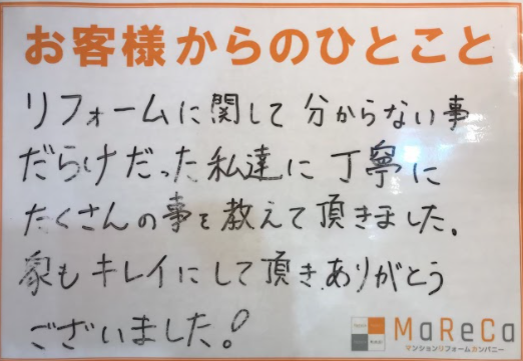 お客様からのひとこと
リフォームに関して分からない事
だらけだった私達に丁寧に
たくさんの事を教えて頂きました。
家もキレイにして頂き、ありがとう
ございました!
MaReCa
マンションリフォームカンパニー